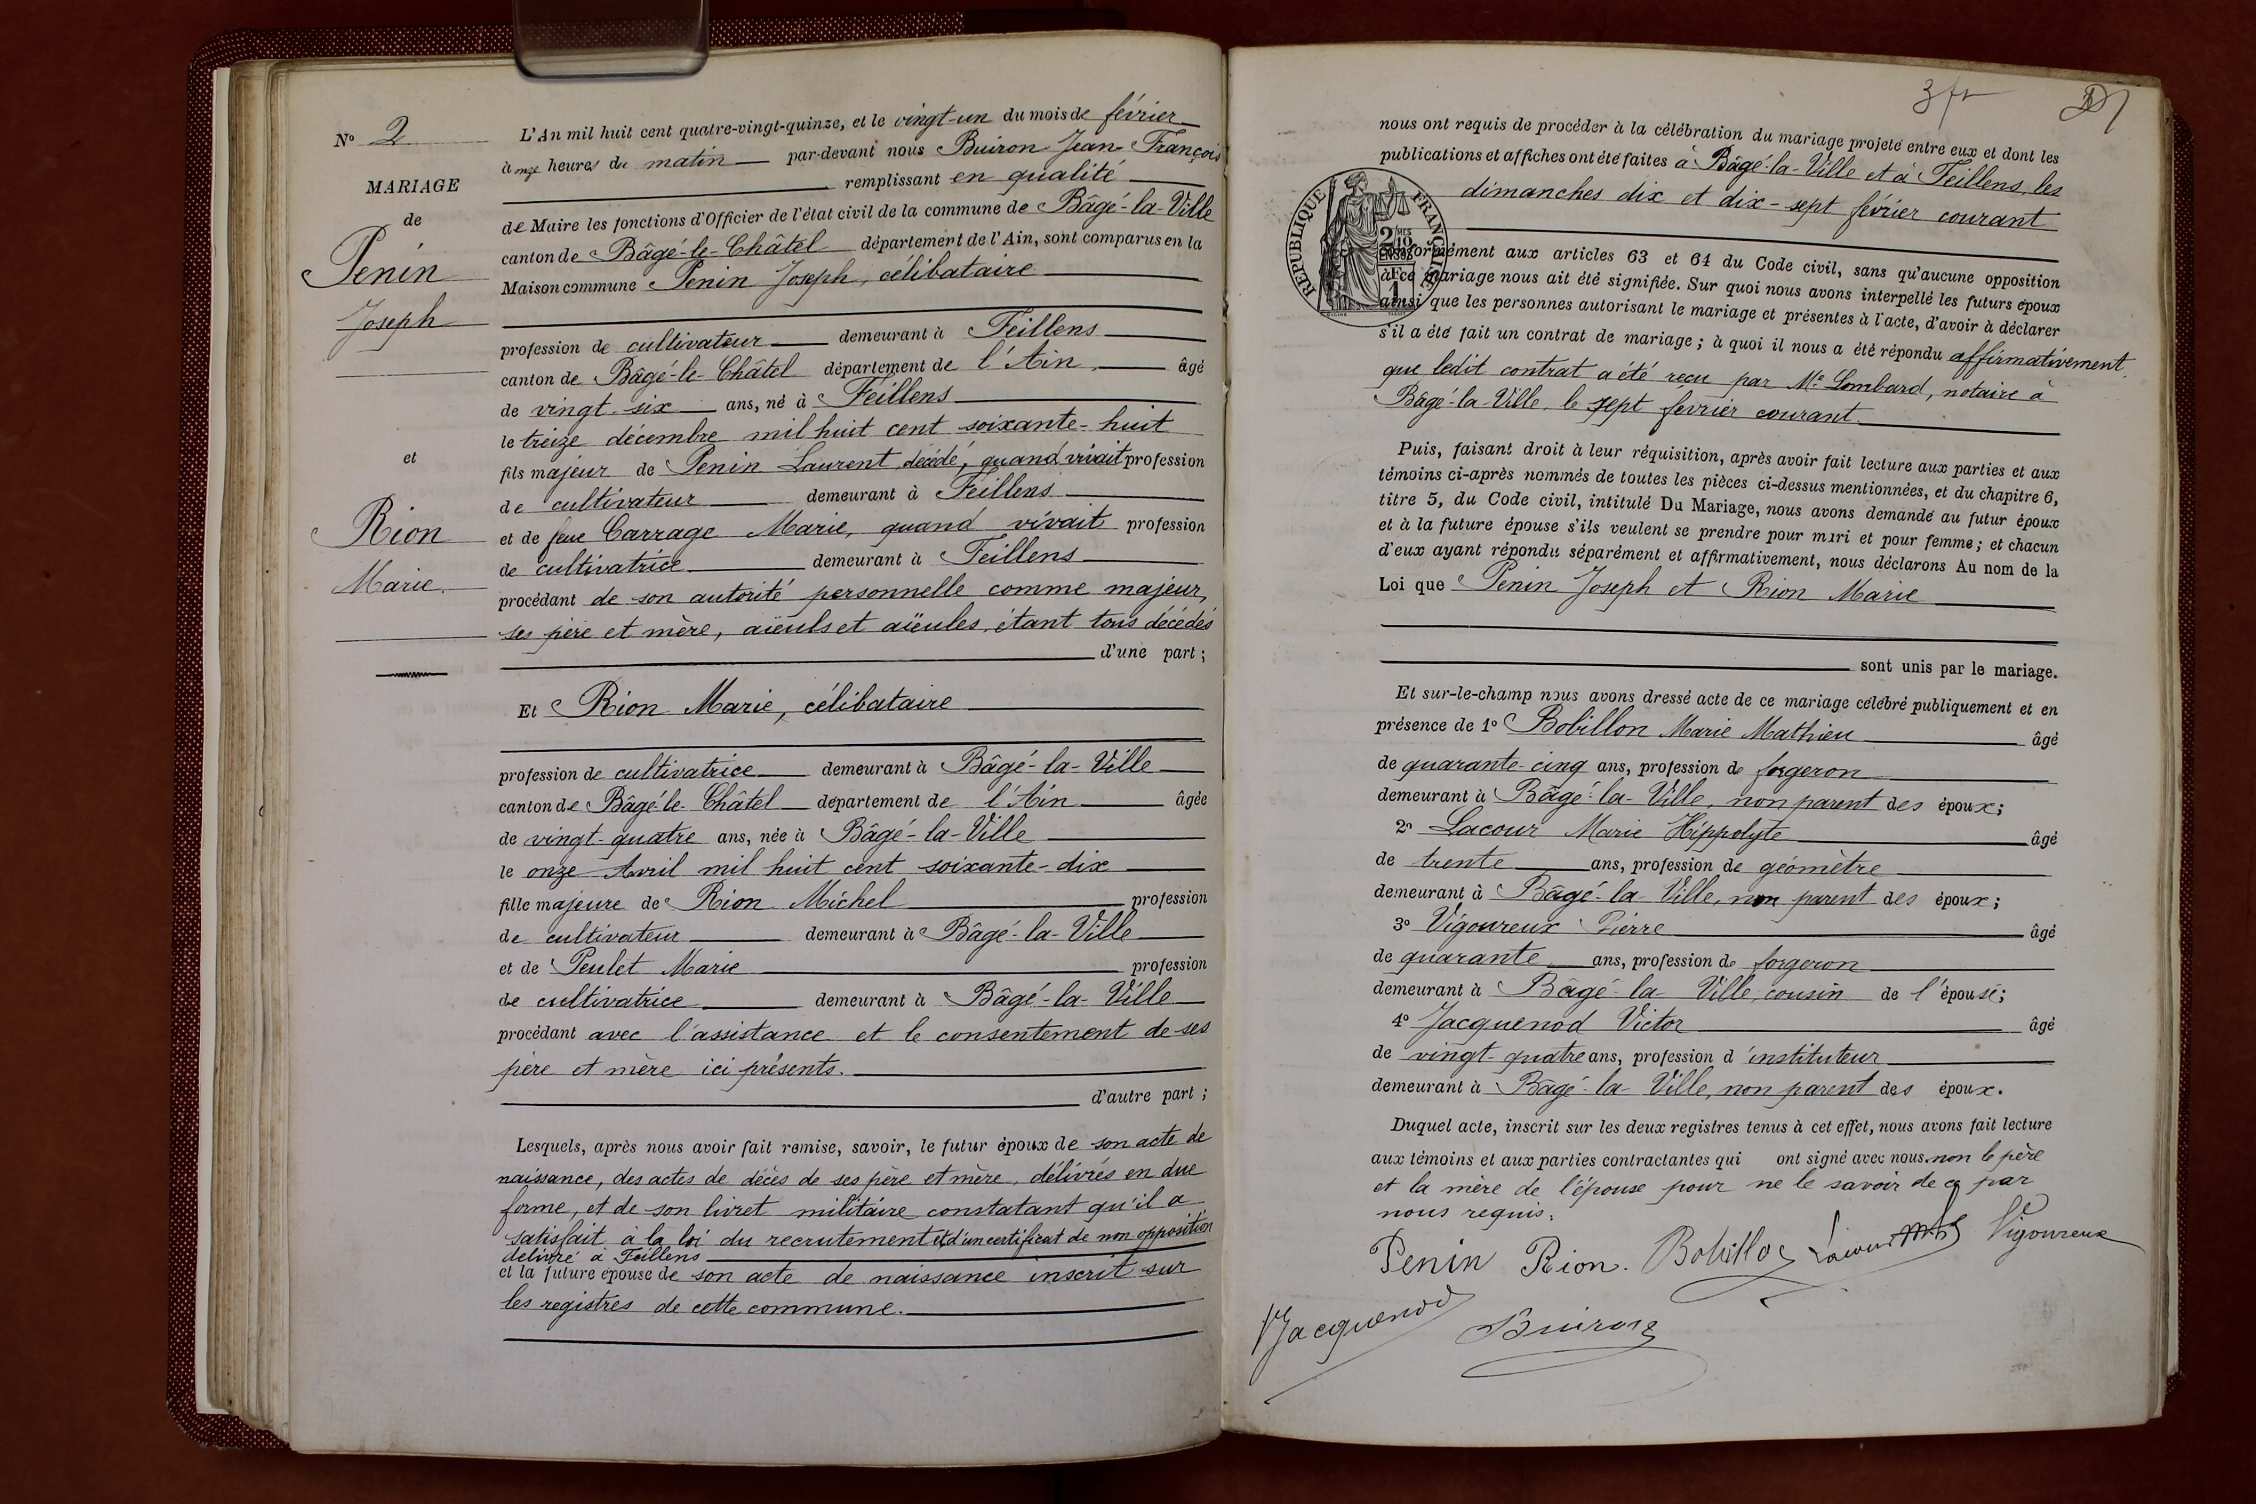 N° 2
MARIAGE
de
Penin
Joseph
et
Rion
Marie.
L'An mil huit cent quatre-vingt-quinze, et le vingt-un du mois de février
à onze heures du matin par-devant nous Buiron Jean François
remplissant en qualité
de Maire les fonctions d'Officier de l'état civil de la commune de Bâgé-la-Ville
canton de Bâgé-le-Châtel département de l'Ain, sont comparus en la
Maison commune Penin Joseph, célibataire
profession de cultivateur demeurant à Feillens
canton de Bâgé-le-Châtel département de l'Ain, âgé
de vingt-six ans, né à Feillens
le treize décembre mil huit cent soixante-huit
fils majeur de Penin Laurent décédé, quand vivait profession
de cultivateur demeurant à Feillens
et de feue Carrage Marie, quand vivait profession
de cultivatrice demeurant à Feillens
procédant de son autorité personnelle comme majeur,
ses père et mère, aïeuls et aïeules, étant tous décédés
d'une part ;
Et Rion Marie, célibataire
profession de cultivatrice demeurant à Bâgé-la-Ville
canton de Bâgé-le-Châtel département de l'Ain âgée
de vingt-quatre ans, née à Bâgé-la-Ville
le onze Avril mil huit cent soixante-dix
fille majeure de Rion Michel profession
de cultivateur demeurant à Bâgé-la-Ville
et de Peulet Marie profession
de cultivatrice demeurant à Bâgé-la-Ville
procédant avec l'assistance et le consentement de ses
père et mère ici présents.
d'autre part ;
Lesquels, après nous avoir fait remise, savoir, le futur époux de son acte de
naissance, des actes de décès de ses père et mère, délivrés en due
forme, et de son livret militaire constatant qu'il a
satisfait à la loi du recrutement et d'un certificat de non opposition
délivré à Feillens
et la future épouse de son acte de naissance inscrit sur
les registres de cette commune.
3 fr
nous ont requis de procéder à la célébration du mariage projeté entre eux et dont les
publications et affiches ont été faites à Bâgé-la-Ville et à Feillens les
dimanches dix et dix-sept février courant
RÉPUBLIQUE FRANÇAISE
conformément aux articles 63 et 64 du Code civil, sans qu'aucune opposition
à ce mariage nous ait été signifiée. Sur quoi nous avons interpellé les futurs époux
ainsi que les personnes autorisant le mariage et présentes à l'acte, d'avoir à déclarer
s'il a été fait un contrat de mariage ; à quoi il nous a été répondu affirmativement,
que ledit contrat a été reçu par Me Lombard, notaire à
Bâgé-la-Ville, le sept février courant.
Puis, faisant droit à leur réquisition, après avoir fait lecture aux parties et aux
témoins ci-après nommés de toutes les pièces ci-dessus mentionnées, et du chapitre 6,
titre 5, du Code civil, intitulé Du Mariage, nous avons demandé au futur époux
et à la future épouse s'ils veulent se prendre pour mari et pour femme ; et chacun
d'eux ayant répondu séparément et affirmativement, nous déclarons Au nom de la
Loi que Penin Joseph et Rion Marie
sont unis par le mariage.
Et sur-le-champ nous avons dressé acte de ce mariage célébré publiquement et en
présence de 1° Bobillon Marie Mathieu âgé
de quarante-cinq ans, profession de forgeron
demeurant à Bâgé-la-Ville, non parent des époux ;
2° Lacour Marie Hippolyte âgé
de trente ans, profession de géomètre
demeurant à Bâgé-la-Ville, non parent des époux ;
3° Vigoureux Pierre âgé
de quarante ans, profession de forgeron
demeurant à Bâgé-la-Ville, cousin de l'épouse ;
4° Jacquenod Victor âgé
de vingt-quatre ans, profession d'instituteur
demeurant à Bâgé-la-Ville, non parent des époux.
Duquel acte, inscrit sur les deux registres tenus à cet effet, nous avons fait lecture
aux témoins et aux parties contractantes qui ont signé avec nous, non le père
et la mère de l'épouse pour ne le savoir de ce par
nous requis.
Penin Rion. Bobillon Lacour Vigoureux
Jacquenod Buiron